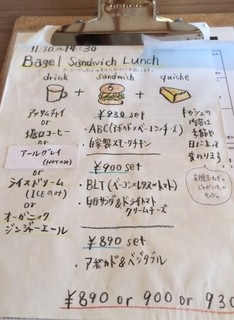 11:30~14:30
Bagel Sandwich Lunch
drink sandwich quiche
+ +
アッサムチャイ
or
塩コーヒー
or
アールグレイ
(HOT or ICE)
or
ライスドリーム
(ICEのみ)
or
オーガニック
ジンジャーエール
¥930 set
・ABC(アボカド×ベーコン×チーズ)
・自家製スモークチキン
¥900 set
・BLT(ベーコン×レタス×トマト)
・自サンダ&ドライトマト
クリームチーズ
¥890 set
・アボカド&ベジタブル
キッシュの
内容は
季節や
日によって
変わります
¥890 or 900 or 930